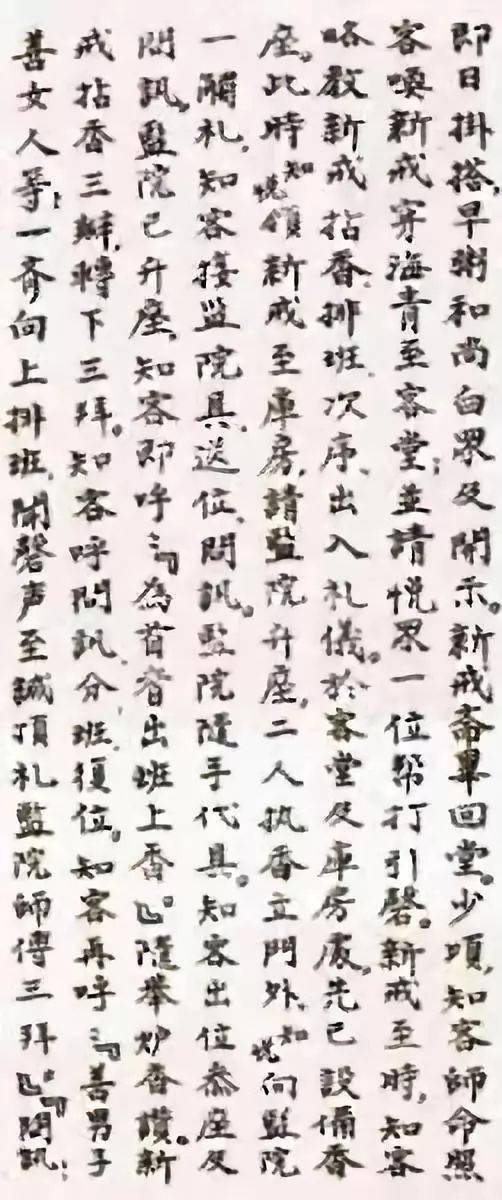 即日掛搭。早粥和尚白眾及開示。新戒斋畢回堂。少頃，知客師命照
客喚新戒穿海青至客堂；並請悅眾一位幫打引磬。新戒至時，知客
略教新戒拈香，排班，次序，出入礼儀。於客堂及庫房處，先已設備香
座。此時知悅領新戒至庫房，請監院升座，二人执香立門外，知悅向監院
一觸礼，知客接監院具，送位，問訊。監院隨手代具。知客出位叅座及
問訊。監院已升座，知客即呼：『為首者出班上香』。隨舉炉香讚。新
戒拈香三瓣，轉下三拜。知客呼問訊，分班，復位。知客再呼：『善男子
善女人等；一齊向上排班，聞磬声至誠頂礼監院師傅三拜』。『問訊；